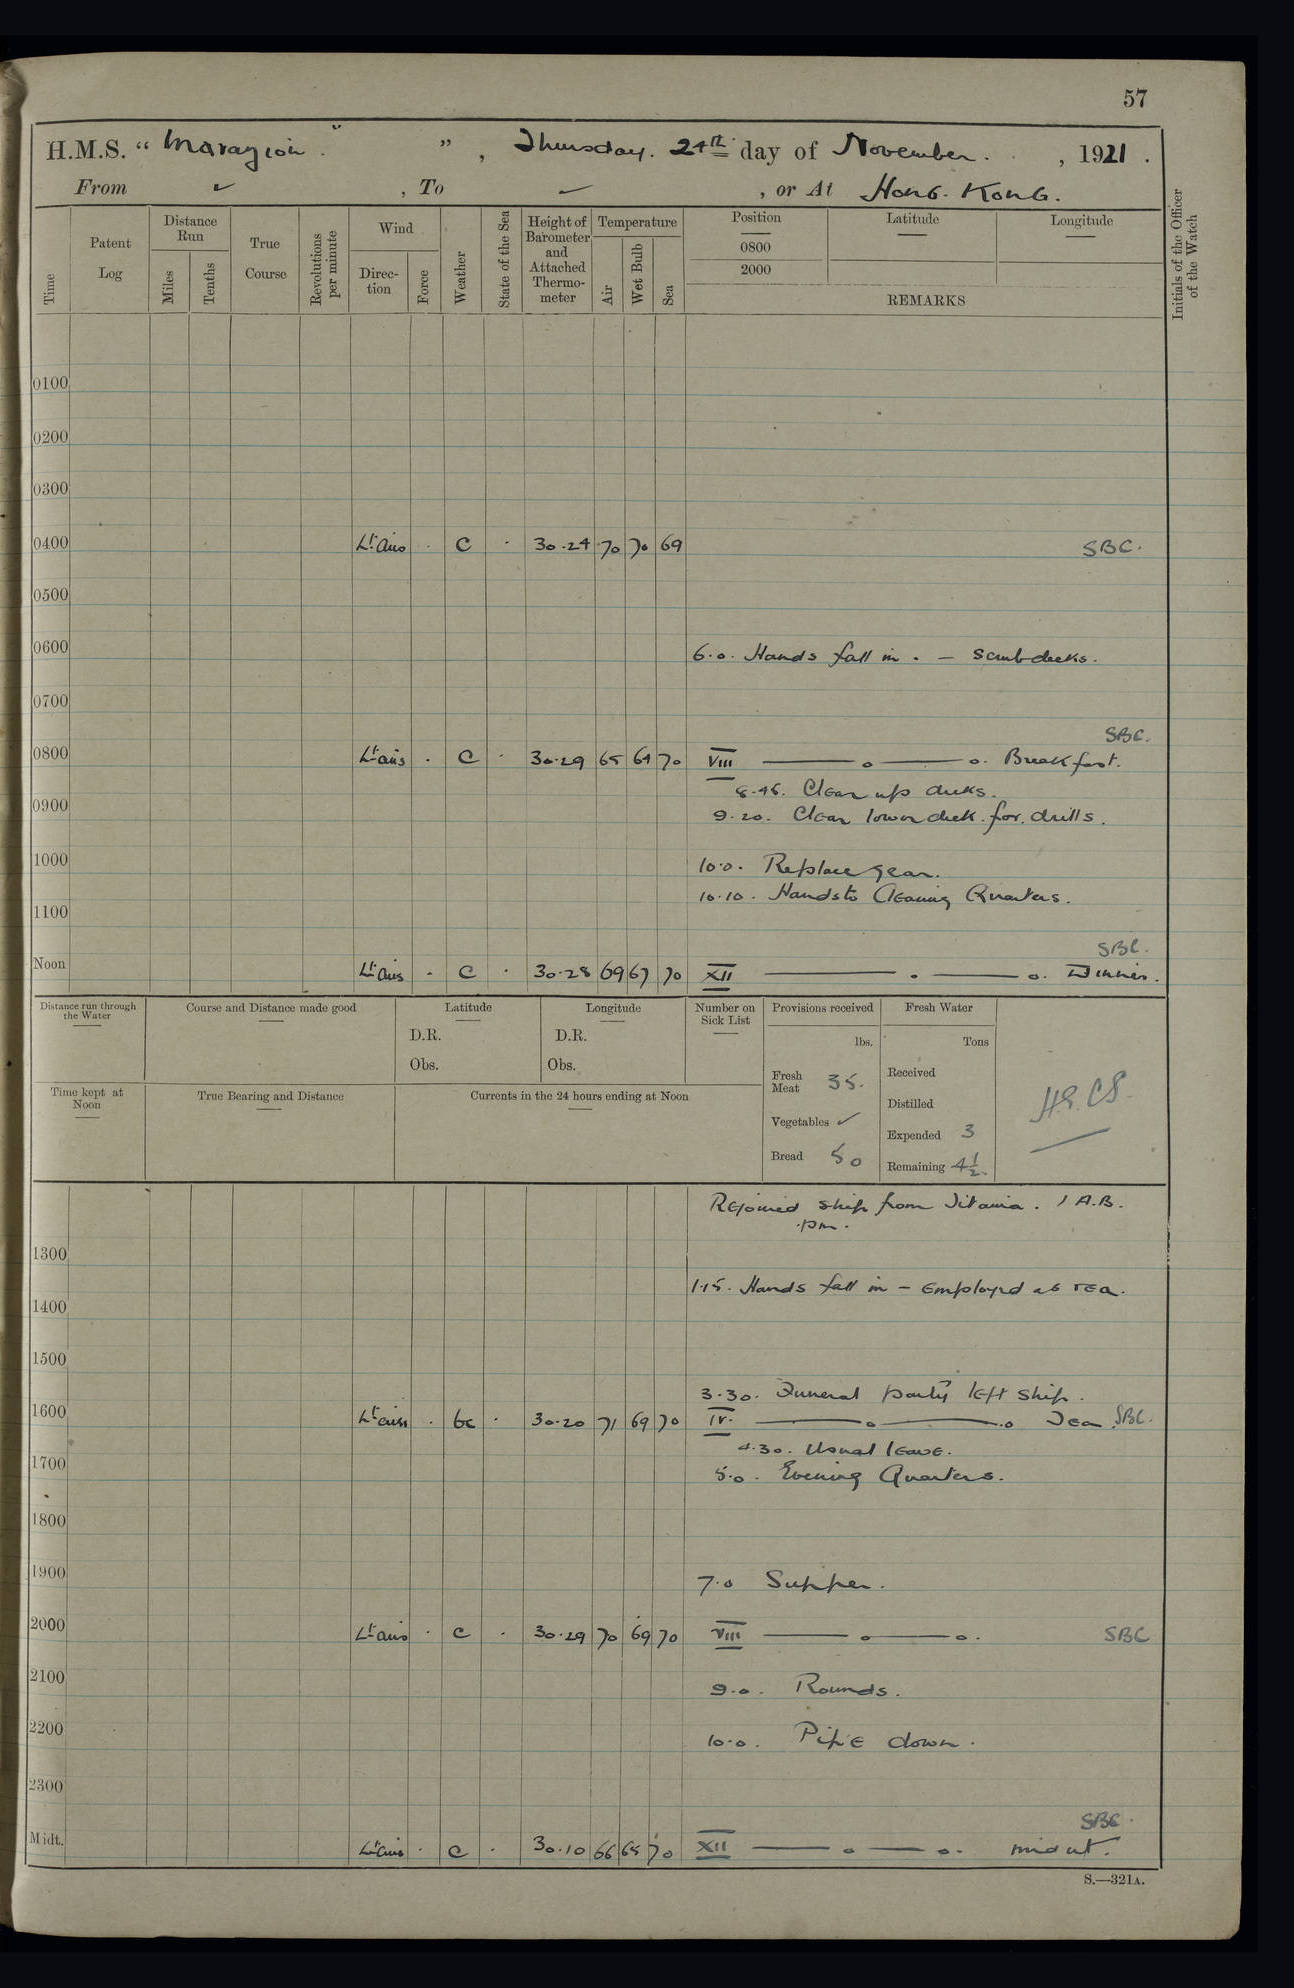 57
H.M.S. “ Marazion ” , Thursday. 24th day of November. , 1921 .
From ✓ , To ✓ , or At Hong. Kong.
Time Patent Log Distance Run Miles Tenths True Course Revolutions per minute Wind Direction Force Weather State of the Sea Height of Barometer and Attached Thermometer Temperature Air Wet Bulb Sea Position 0800 2000 Latitude Longitude REMARKS Initials of the Officer of the Watch
0100
0200
0300
0400 Lt airs . C . 30.24 70 70 69 SBC.
0500
0600 6.0. Hands fall in . – Scrub decks.
0700
SBC.
0800 Lt airs . C . 30.29 65 64 70 VIII —— o —— o. Breakfast.
8.45. Clear up decks.
0900 9.20. Clear lower deck. for. drills.
1000 10.0. Replace gear.
10.10. Hands to Cleaning Quarters.
1100
SBC.
Noon Lt airs . C . 30.28 69 67 70 XII —— o —— o. Dinner.
Distance run through the Water Course and Distance made good Latitude Longitude Number on Sick List Provisions received Fresh Water
D.R. D.R. lbs. Tons
Obs. Obs.
Fresh Meat 35. Received
Time kept at Noon True Bearing and Distance Currents in the 24 hours ending at Noon
Distilled
Vegetables ✓ Expended 3
Bread 50 Remaining 4½.
Rejoined ship from Titania. 1 A.B.
pm.
1300
1.15. Hands fall in – Employed as req.
1400
1500
3.30. Funeral party left ship.
1600 Lt airs . bc . 30.20 71 69 70 IV. —— o —— o Tea. SBC.
4.30. Usual leave.
1700 5.0. Evening Quarters.
1800
1900 7.0 Supper.
2000 Lt airs . C . 30.29 70 69 70 VIII —— o —— o. SBC
2100 9.0. Rounds.
2200 10.0. Pipe down.
2300
SBC.
Midt. Lt airs . C . 30.10 66 65 70 XII —— o —— o. midnt.
S.—321A.